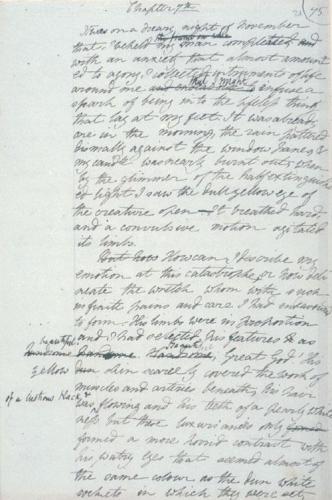 Chapter 7th
It was on a dreary night of November
that I beheld my man completed and
with an anxiety that almost amount
ed to agony, I collected instruments of life
around me and that I might infuse a
spark of being into the lifeless thing
that lay at my feet. It was already
one in the morning, the rain pattered
dismally against the window panes &
my candle was nearly burnt out, when
by the glimmer of the half extinguish
ed light I saw the dull yellow eye of
the creature open — It breathed hard,
and a convulsive motion agitated
its limbs.
But how How can I describe my
emotion at this catastrophe, or how deli
neate the wretch whom with such
infinite pains and care I had endeavoured
to form. His limbs were in proportion
and I had selected his features as
beautiful
handsome Handsome, Great God! His
yellow skin scarcely covered the work of
muscles and arteries beneath; his hair
of a lustrous black, &
was flowing and his teeth of a pearly white
ness but these luxuriances only
formed a more horrid contrast with
his watry eyes that seemed almost of
the same colour as the dun white
sockets in which they were set,